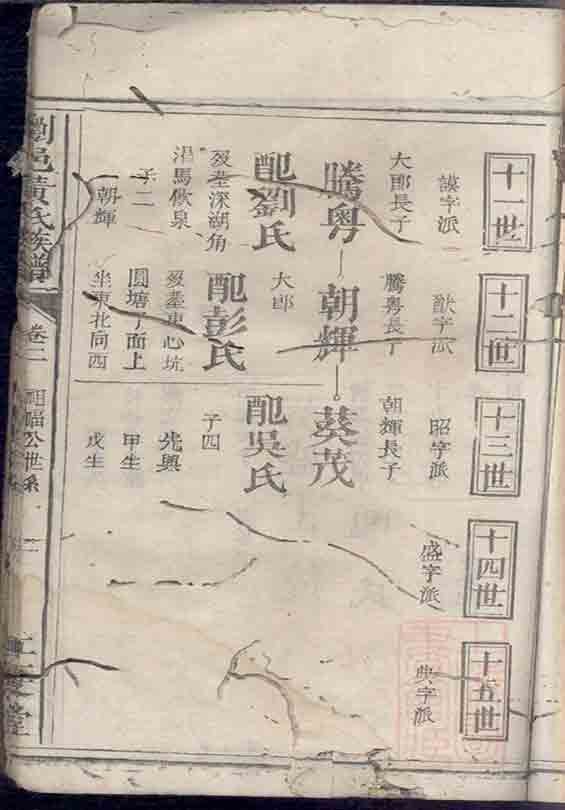 十一世
謨字派
大郎長子
騰粵
配劉氏
歿塟深湖角
渴馬飲泉
子二
朝輝
十二世
猷字派
騰粵長子
朝輝
大郎
配彭氏
歿塟車心坑
圓塘子面上
坐東北向西
十三世
昭字派
朝輝長子
葵茂
配吳氏
子四
先興
甲生
戊生
十四世
盛字派
十五世
典字派
瀏邑黄氏族譜
卷二
祖福公世系
三